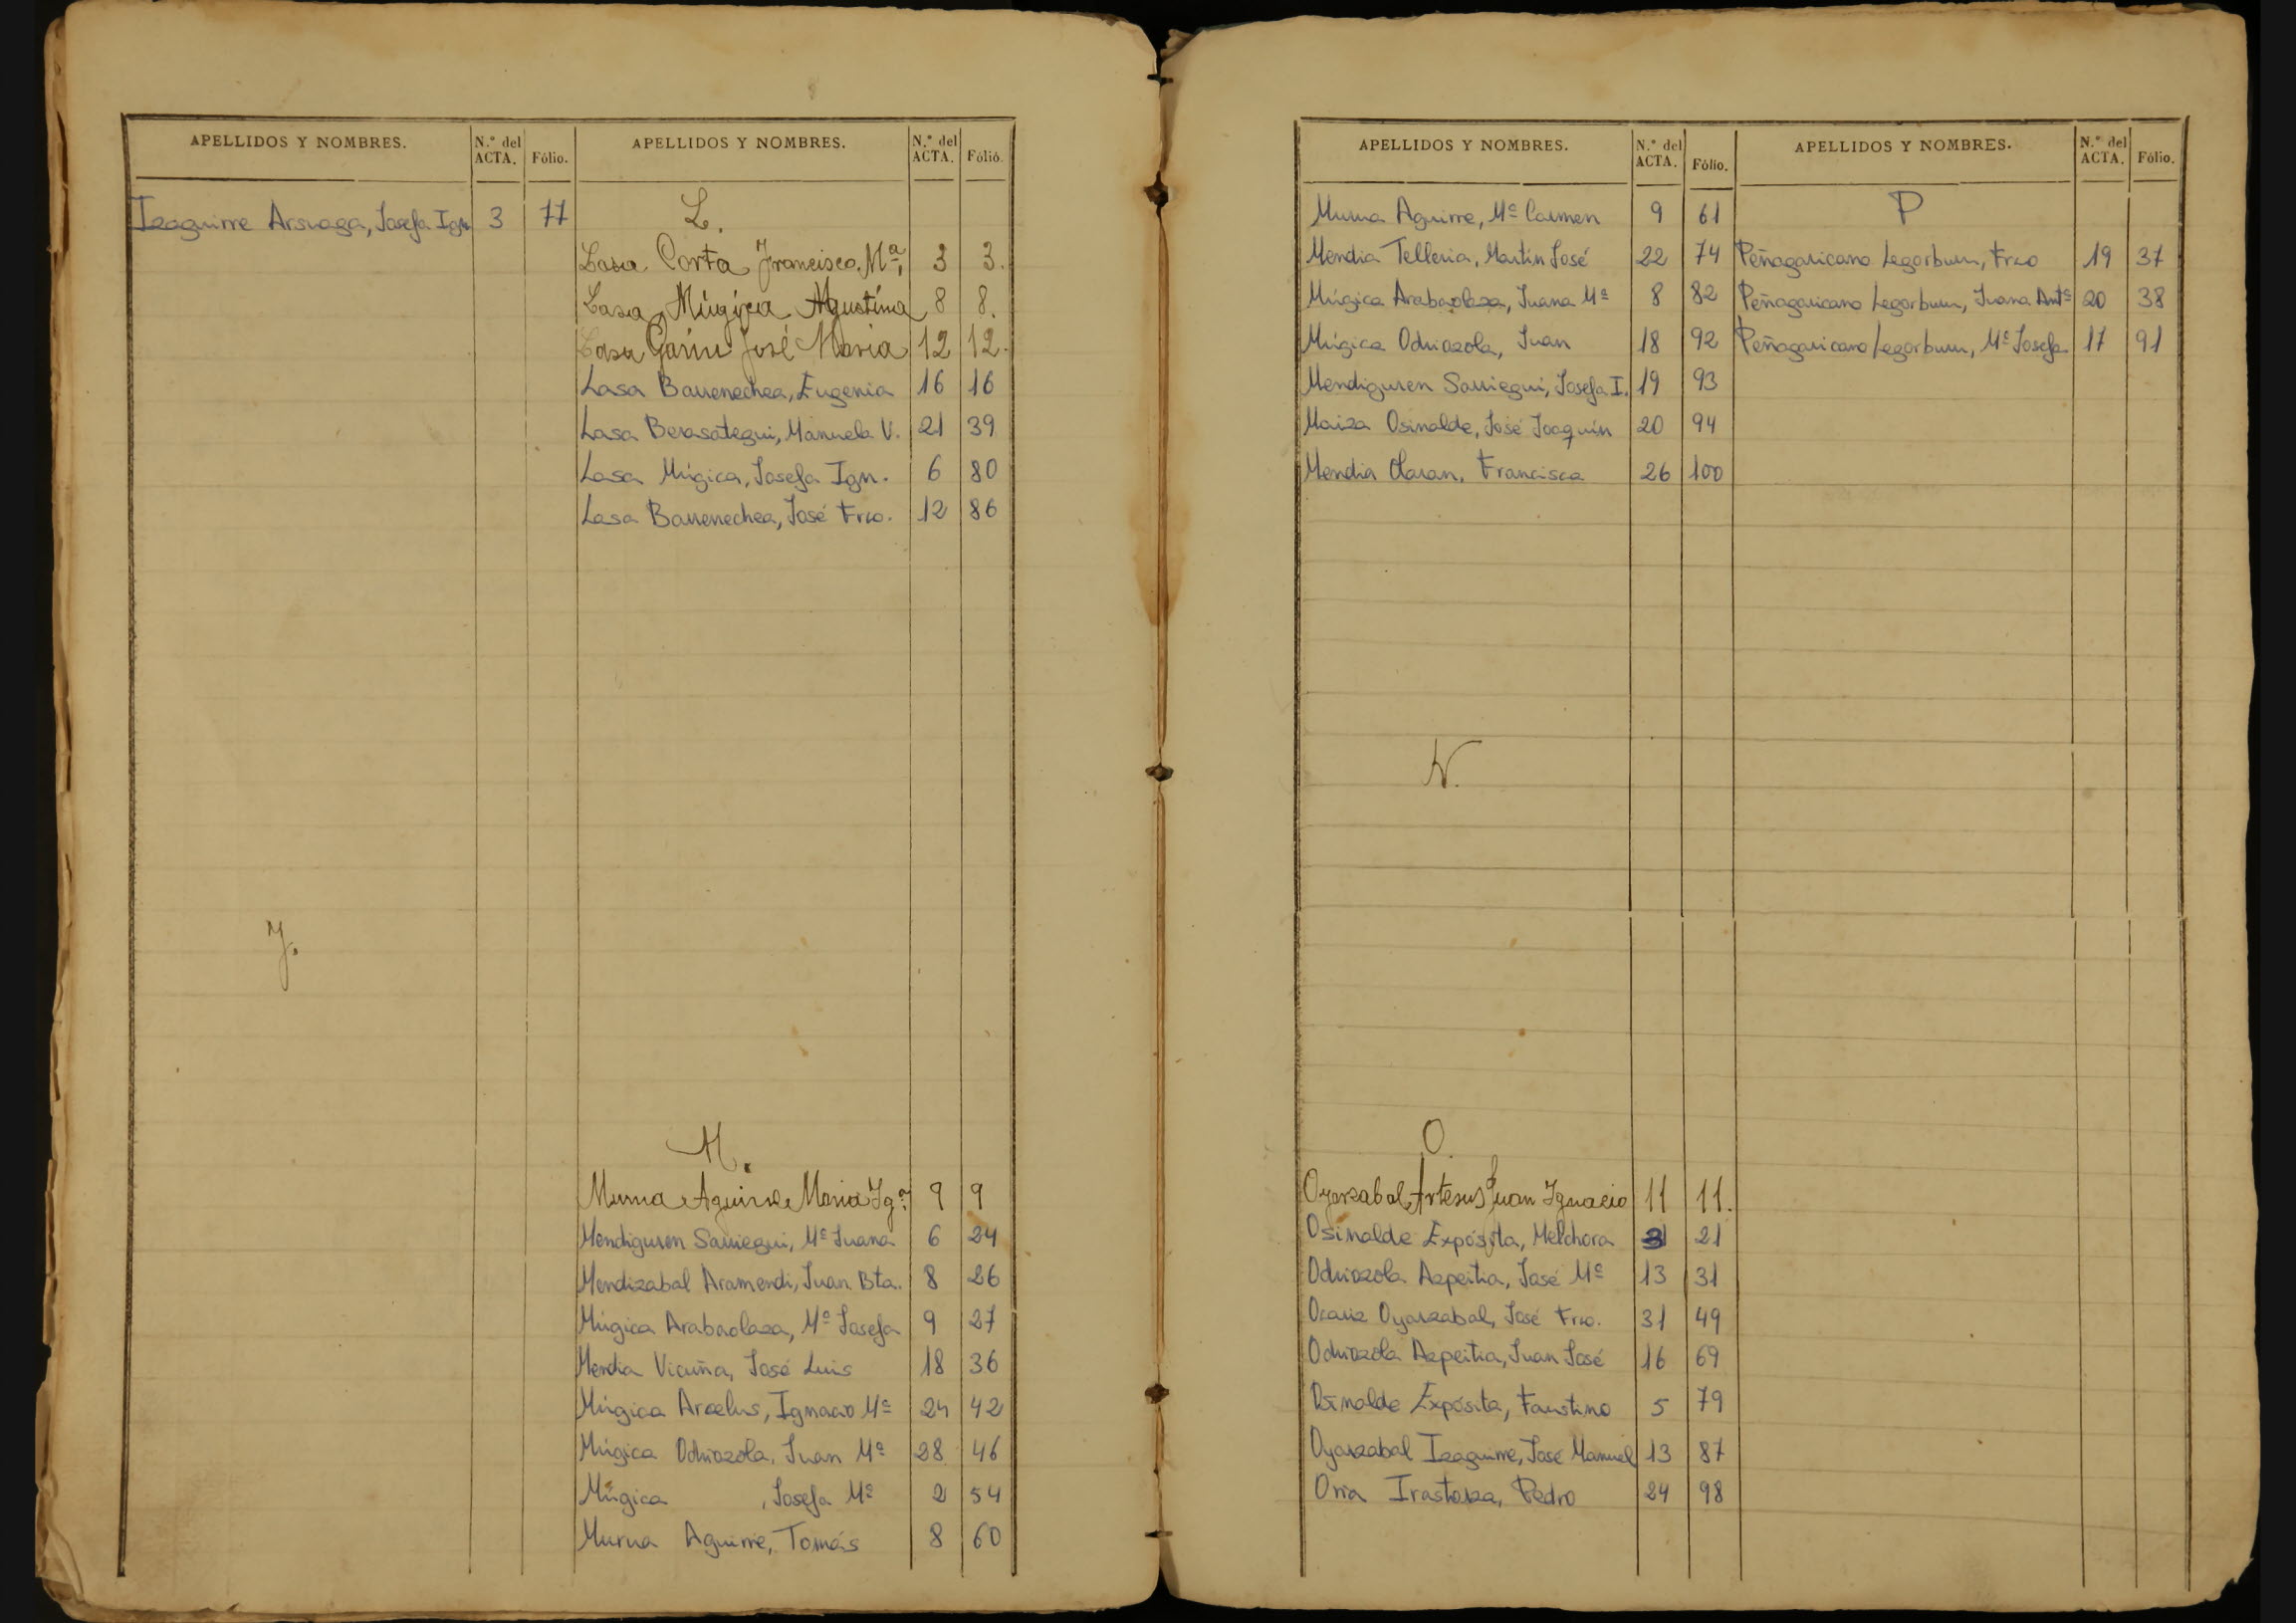 APELLIDOS Y NOMBRES. N.º del ACTA. Fólio.
Izaguirre Arsuaga, Josefa Ign. 3 77
J.
APELLIDOS Y NOMBRES. N.º del ACTA. Fólio.
L.
Lasa Corta Francisco Mª, 3 3.
Lasa Múgica Agustina 8 8.
Lasa Garin José Maria 12 12.
Lasa Barrenechea, Eugenia 16 16
Lasa Berasategui, Manuela V. 21 39
Lasa Múgica, Josefa Ign. 6 80
Lasa Barrenechea, José Frco. 12 86
M.
Murua Aguirre Maria Igª 9 9
Mendiguren Sarriegui, Mª Juana 6 24
Mendizabal Aramendi, Juan Bta. 8 26
Múgica Arabaolaza, Mª Josefa 9 27
Mendia Vicuña, José Luis 18 36
Múgica Arcelus, Ignacio Mª 24 42
Múgica Odriozola, Juan Mª 28 46
Múgica , Josefa Mª 2 54
Murua Aguirre, Tomás 8 60
APELLIDOS Y NOMBRES. N.º del ACTA. Fólio.
Murua Aguirre, Mª Carmen 9 61
Mendia Telleria, Martín José 22 74
Múgica Arabaolaza, Juana Mª 8 82
Múgica Odriozola, Juan 18 92
Mendiguren Sarriegui, Josefa I. 19 93
Maiza Osinalde, José Joaquín 20 94
Mendia Olaran, Francisca 26 100
N.
O.
Oyarzabal Artesus Juan Ignacio 11 11.
Osinalde Expósita, Melchora 3 21
Odriozola Azpeitia, José Mª 13 31
Ocariz Oyarzabal, José Frco. 31 49
Odriozola Azpeitia, Juan José 16 69
Osinalde Expósita, Faustino 5 79
Oyarzabal Izaguirre, José Manuel 13 87
Oria Irastorza, Pedro 24 98
APELLIDOS Y NOMBRES. N.º del ACTA. Fólio.
P
Peñagaricano Legorburu, Frco 19 37
Peñagaricano Legorburu, Juana Antª 20 38
Peñagaricano Legorburu, Mª Josefa 17 91